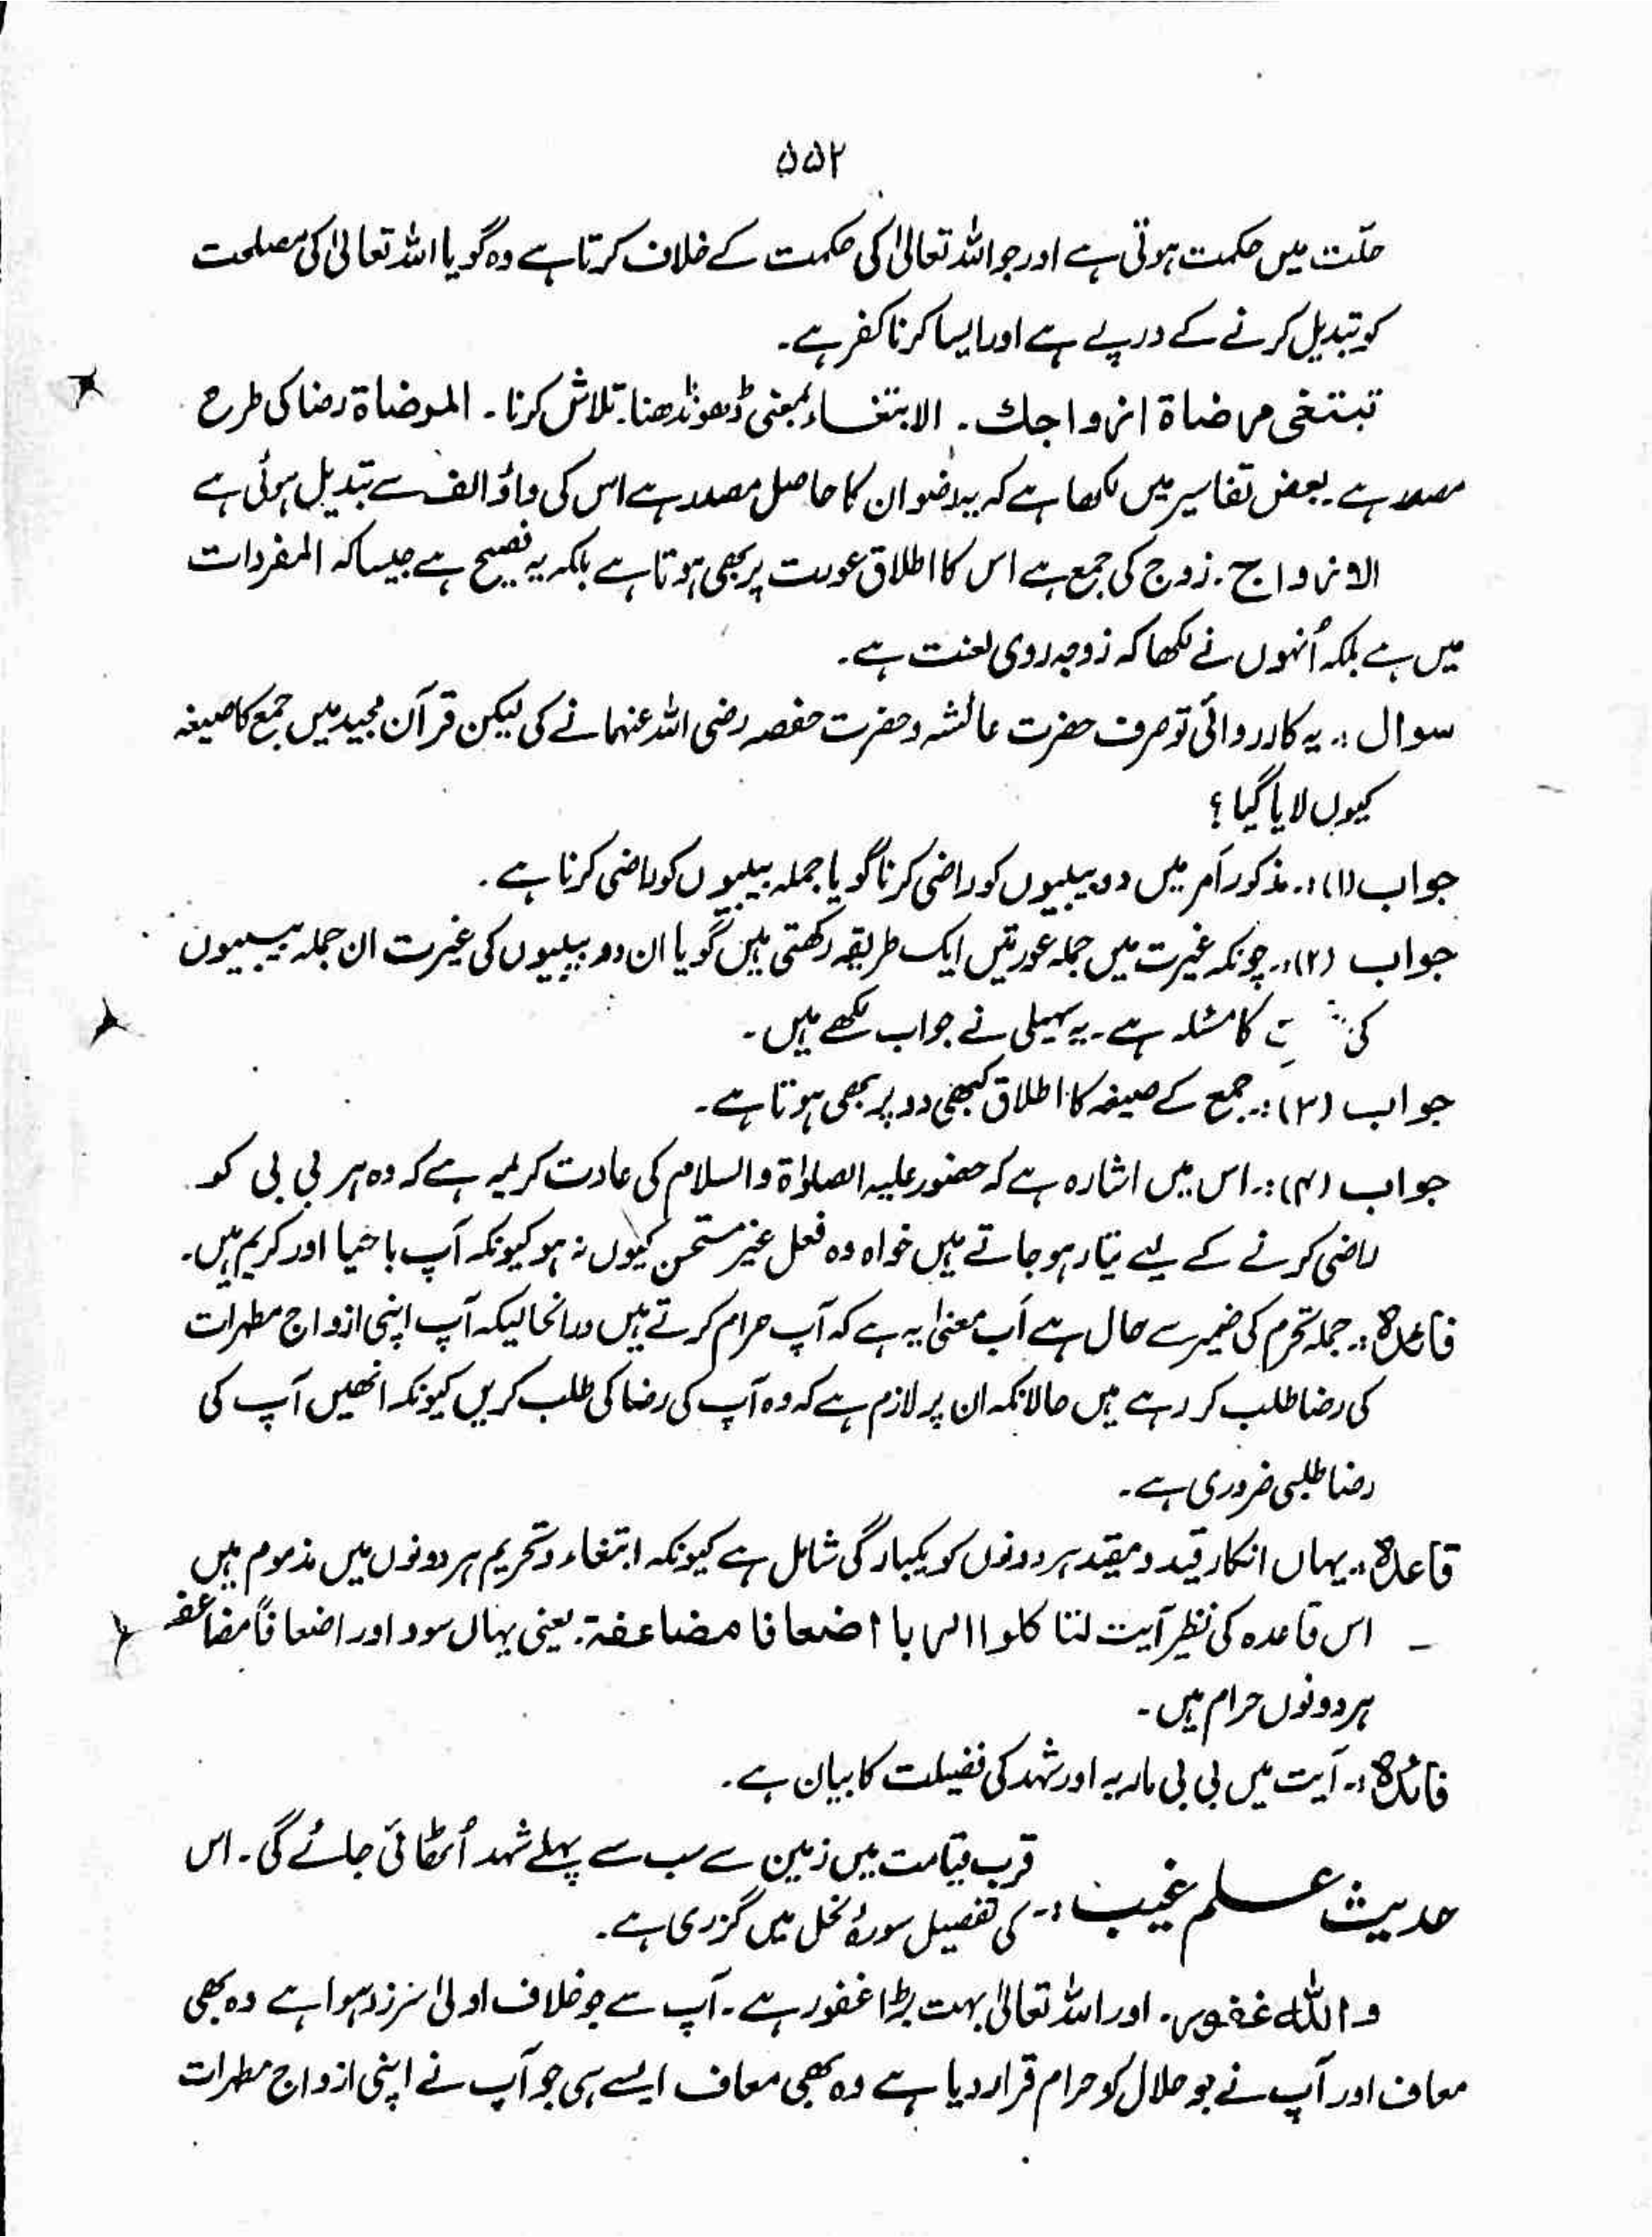 ۵۵۲
حلّت میں حکمت ہوتی ہے اور جو اللہ تعالیٰ کی حکمت کے خلاف کرتا ہے وہ گویا اللہ تعالیٰ کی مصلحت
کو تبدیل کرنے کے درپے ہے اور ایسا کرنا کفر ہے۔
تبتغی مرضاۃ ازواجك ۔ الابتغاء بمعنی ڈھونڈھنا۔ تلاش کرنا ۔ المرضاۃ رضا کی طرح
مصدر ہے۔ بعض تفاسیر میں لکھا ہے کہ یہ رضوان کا حاصل مصدر ہے اس کی واؤ الف سے تبدیل ہوئی ہے
الازواج ۔ زوج کی جمع ہے اس کا اطلاق عورت پر بھی ہوتا ہے بلکہ یہ فصیح ہے جیسا کہ المفردات
میں ہے بلکہ اُنہوں نے لکھا کہ زوجہ ردی لغت ہے۔
سوال :۔ یہ کارروائی تو صرف حضرت عائشہ و حضرت حفصہ رضی اللہ عنہما نے کی لیکن قرآن مجید میں جمع کا صیغہ
کیوں لایا گیا ؟
جواب (۱) :۔ مذکور اَمر میں دو بیبیوں کو راضی کرنا گویا جملہ بیبیوں کو راضی کرنا ہے ۔
جواب (۲) :۔ چونکہ غیرت میں جملہ عورتیں ایک طریقہ رکھتی ہیں گویا ان دو بیبیوں کی غیرت ان جملہ بیبیوں
کی کا مسئلہ ہے ۔ یہ سہیلی نے جواب لکھے ہیں ۔
جواب (۳) :۔ جمع کے صیغہ کا اطلاق کبھی دو پر بھی ہوتا ہے ۔
جواب (۴) :۔ اس میں اشارہ ہے کہ حضور علیہ الصلوٰۃ والسلام کی عادت کریمہ ہے کہ وہ ہر بی بی کو
راضی کرنے کے لیے تیار ہو جاتے ہیں خواہ وہ فعل غیر مستحسن کیوں نہ ہو کیونکہ آپ باحیا اور کریم ہیں۔
فائدہ :۔ جملہ تحرم کی ضمیر سے حال ہے اَب معنیٰ یہ ہے کہ آپ حرام کرتے ہیں درانحالیکہ آپ اپنی ازواج مطہرات
کی رضا طلب کر رہے ہیں حالانکہ ان پر لازم ہے کہ وہ آپ کی رضا کی طلب کریں کیونکہ انھیں آپ کی
رضا طلبی ضروری ہے ۔
قاعدہ :۔ یہاں انکار قید و مقید ہر دونوں کو یکبارگی شامل ہے کیونکہ ابتغاء و تحریم ہر دونوں میں مذموم ہیں
اس قاعدہ کی نظیر آیت لتنا کلوا الربا اضعافا مضاعفۃ ۔ یعنی یہاں سود اور اضعافاً مضاعفہ
ہر دونوں حرام ہیں ۔
فائدہ :۔ آیت میں بی بی ماریہ اور شہد کی فضیلت کا بیان ہے ۔
حدیث علم غیب :۔ قرب قیامت میں زمین سے سب سے پہلے شہد اُٹھائی جائے گی ۔ اس
کی تفصیل سورۂ نحل میں گزری ہے ۔
واللہ غفور ۔ اور اللہ تعالیٰ بہت بڑا غفور ہے ۔ آپ سے جو خلاف اولیٰ سرزد ہوا ہے وہ بھی
معاف اور آپ نے جو حلال کو حرام قرار دیا ہے وہ بھی معاف ایسے ہی جو آپ نے اپنی ازواج مطہرات